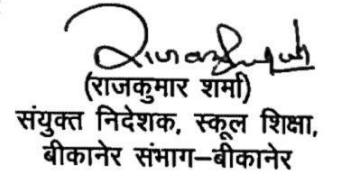 (राजकुमार शर्मा)
संयुक्त निदेशक, स्कूल शिक्षा,
बीकानेर संभाग–बीकानेर